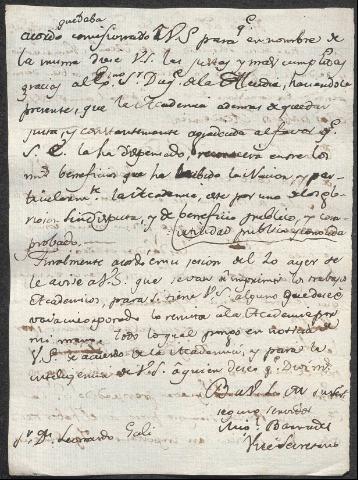 quedaba
acordo comisionado à V.S. para q.e en nombre de
la misma diese V.S. las justas y mas cumplidas
gracias al Ex.mo S.r Duq.e de la haciendole
presente, que la Academia ademas de quedar
justa, y constantemente agradecida al favor q.e
S.E. la ha dispensado, reconocera entre los
beneficios que ha recibido la Nacion, y par-
ticularm.te la Academia, este por uno de los
sin disputa, y de beneficio publico, y com-
utilidad publica y conocida
probado.
Finalmente acordó en su sesion del 20 ayer se
le avise a V.S. que se van a imprimir los trabajos
Academicos, para si tiene V.S. alguno que deseè
vaya incorporado lo remita a la Academia por
mi mano. todo lo qual pongo en noticia de
V.S. de acuerdo de la Academia, y para la
inteligencia de V.S. a quien deseo q.e Dios m.s
B. L. M. su at.o
seguro servidor
Ant.o Barnades
Vice Secretario
S.r D.n Leonardo Galli